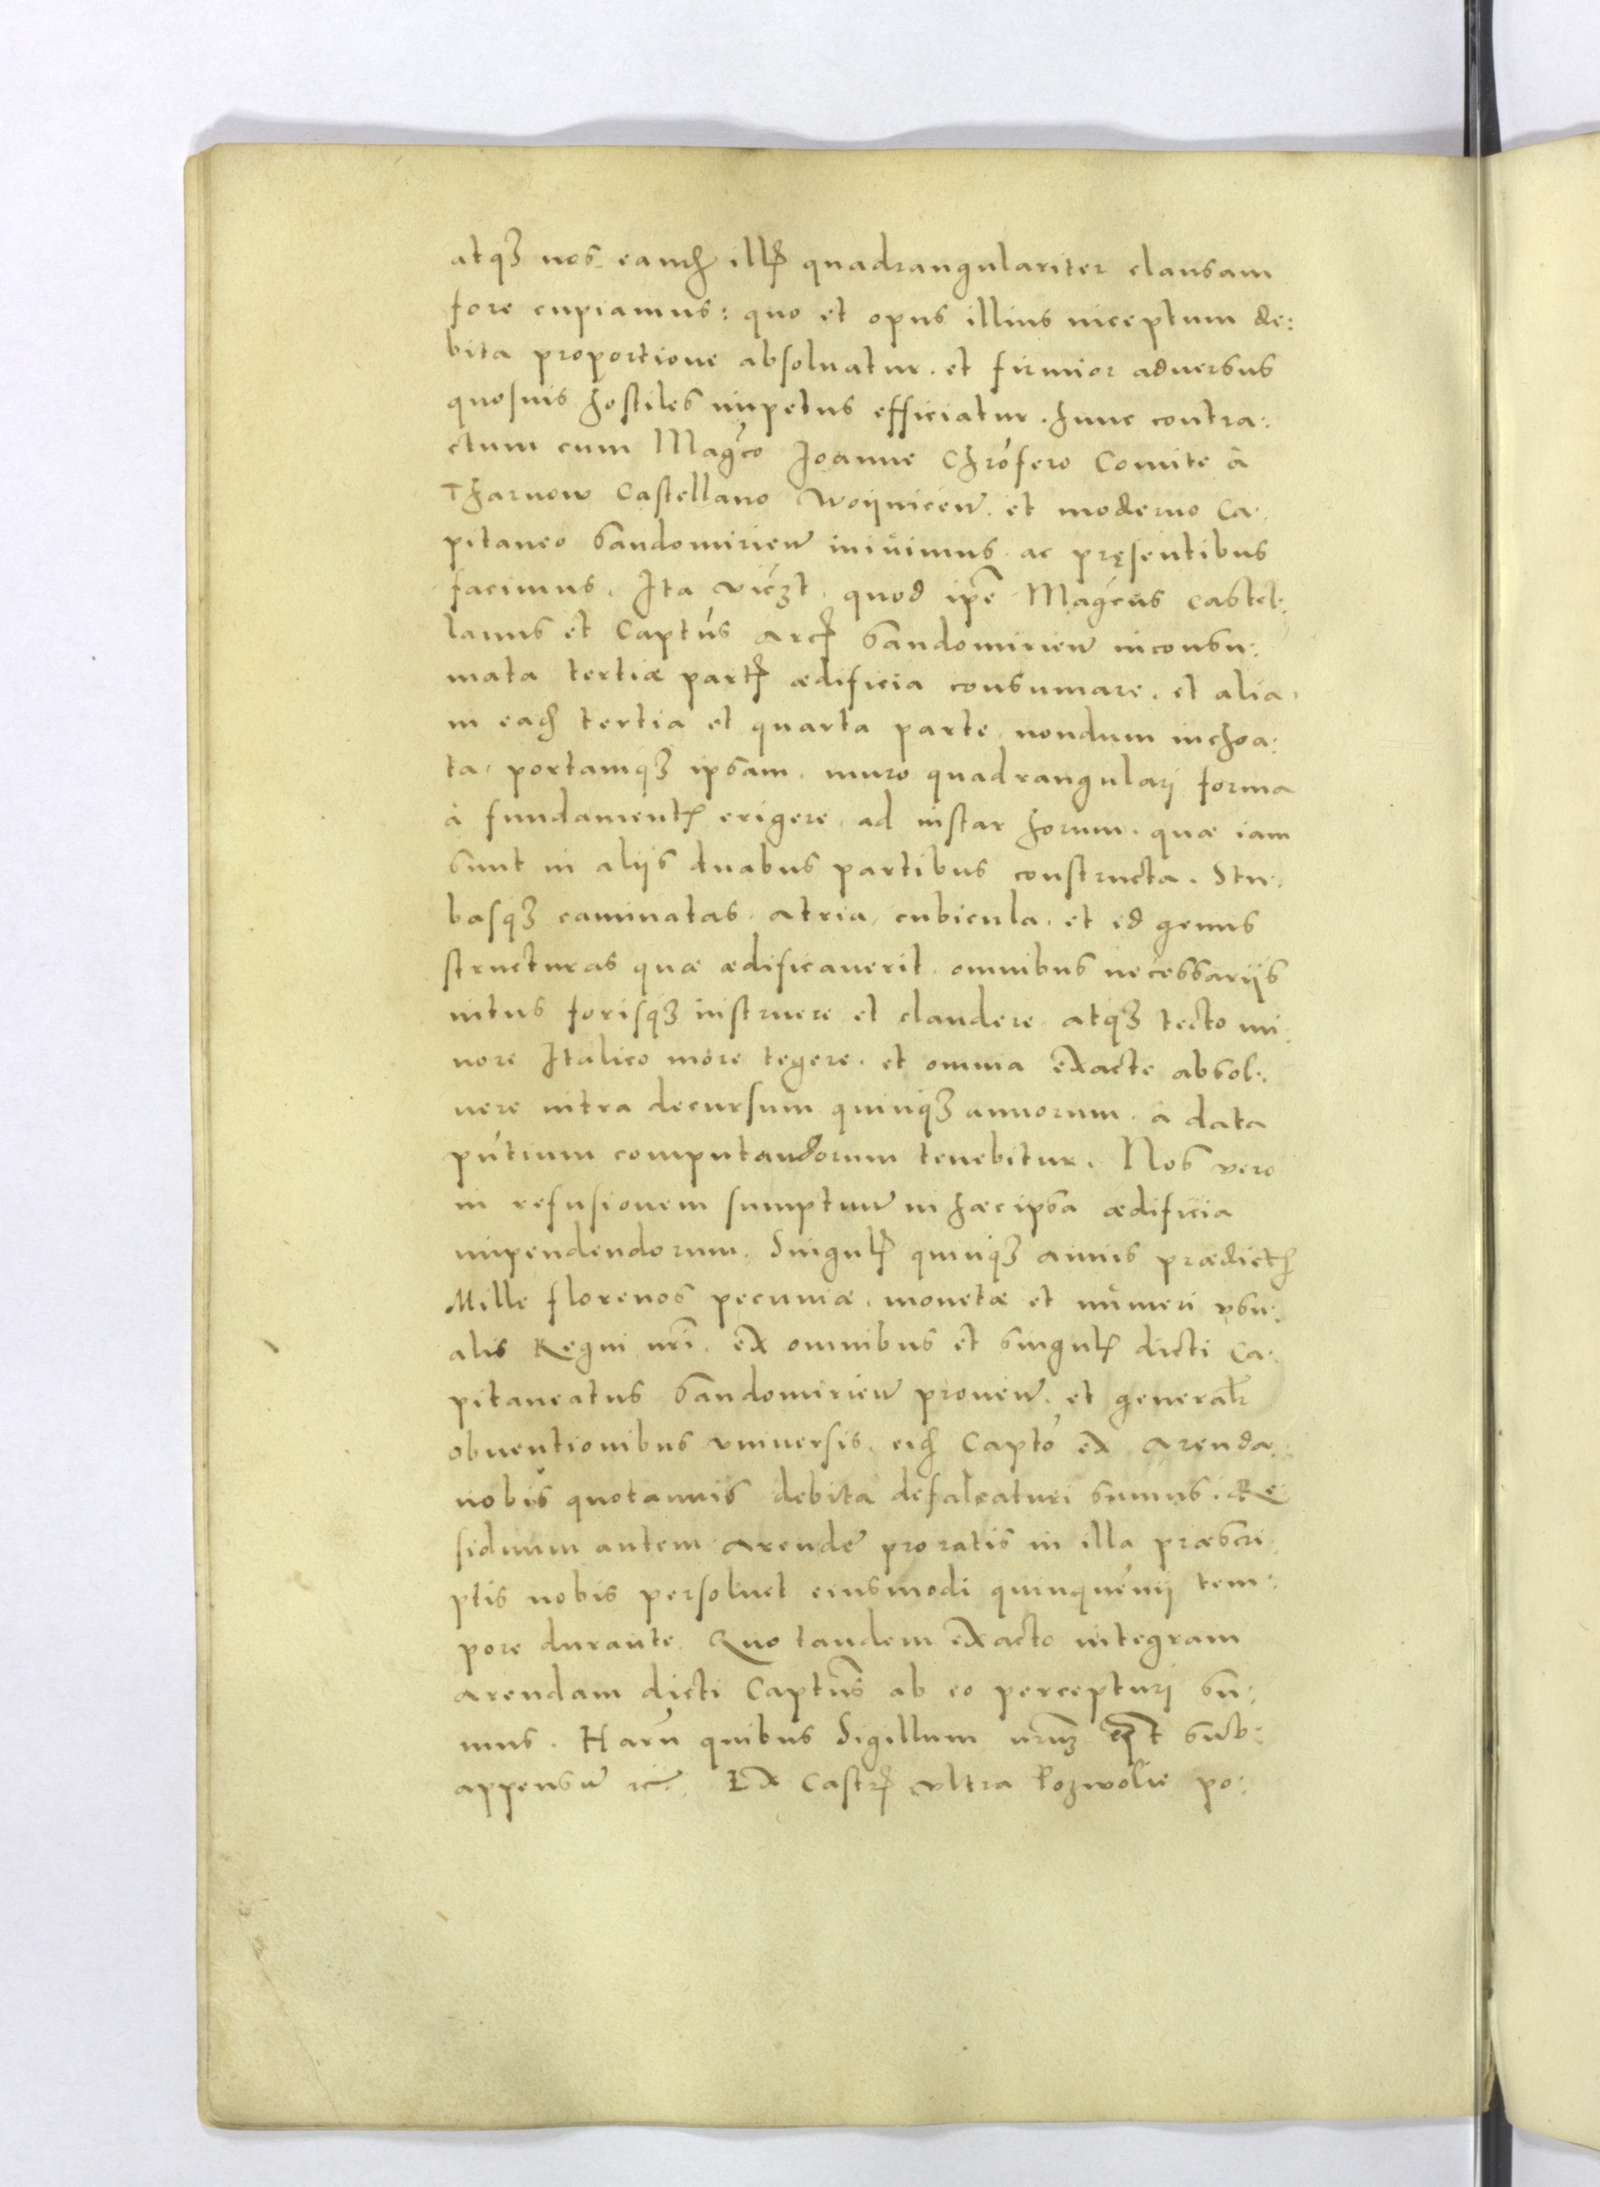 atqꝫ nos eandꝫ illꝭ quadrangulariter clausam
fore cupiamus: quo et opus illius inceptum de:
bita proportione absoluatur. et firmior aduersus
quosuis hostiles impetus efficiatur. hunc contra:
ctum cum Magco Joanne Chrofero Comite à
Tharnow Castellano Woijnicen. et moderno Ca:
pitaneo Sandomirien inivimus. ac pręsentibus
facimus. Ita viczt. quod ipe Magcus Castel:
lanus et Captus Arcꝭ Sandomirien inconsu:
mata tertiæ partꝭ ædificia consumare. et alia.
in eadꝫ tertia et quarta parte nondum inchoa:
ta. portamqꝫ ipsam. muro quadrangulari forma
à fundamentꝭ erigere. ad instar horum. quæ iam
sunt in aliis duabus partibus constructa. Stu:
basqꝫ caminatas. atria, cubicula. et id genus
structuras quæ ædificauerit. omnibus necessariis
intus forisqꝫ instruere et claudere. atqꝫ tecto mi:
nore Italico more tegere. et omnia exacte absol:
uere intra decursum quinqꝫ annorum. a data
pntium computandorum tenebitur. Nos vero
in refusionem sumptuum in hæc ipsa ædificia
impendendorum. Singulꝭ quinqꝫ annis prædictꝭ
Mille florenos pecuniæ. monetæ et numeri vsu:
alis Regni nri. ex omnibus et singulꝭ dicti Ca:
pitaneatus Sandomirien prouen. et generalr
obuentionibus vniuersis. eidꝫ Capto ex Arenda
nobis quotannis debita defalcaturi sumus. Re
siduum autem Arende pro ratis in illa præscri
ptis nobis persoluet eiusmodi quinquenii tem:
pore durante. Quo tandem exacto integram
arendam dicti Captus ab eo percepturi su:
mus. Haru quibus Sigillum nrum est sub:
appensum ꝛc. Ex Castrꝭ vltra Pozwolie po: